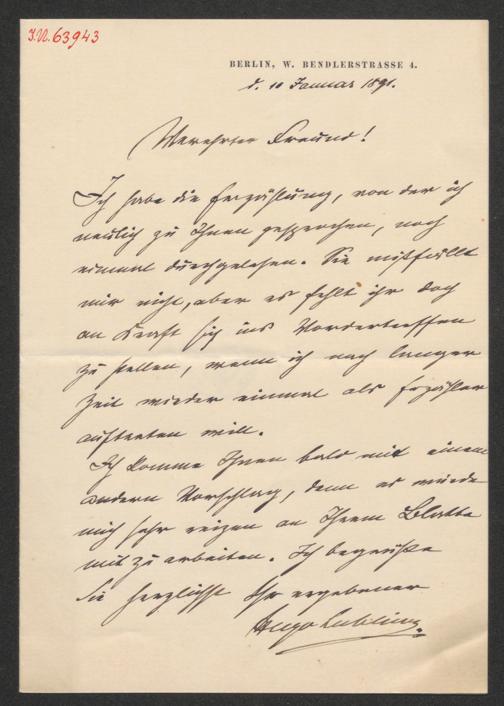 I.N. 63943
BERLIN, W. BENDLERSTRASSE 4.
d. 10 Januar 1891.
Verehrter Freund!
Ich habe die Erzählung, von der ich
neulich zu Ihnen gesprochen, noch
einmal durchgelesen. Sie mißfällt
mir nicht, aber es fehlt ihr doch
an Kraft sich ins Vordertreffen
zu stellen, wenn ich nach langer
Zeit wieder einmal als Erzähler
auftreten will.
Ich komme Ihnen bald mit einem
andern Vorschlag, denn es würde
mich sehr reizen an Ihrem Blatte
mit zu arbeiten. Ich begrüße
Sie herzlichst Ihr ergebener
Hugo Lubliner